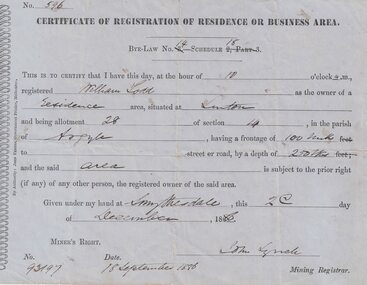 No. 596
CERTIFICATE OF REGISTRATION OF RESIDENCE OR BUSINESS AREA.
BYE-LAW No. 14 SCHEDULE 18 2, PART 3.
THIS IS TO CERTIFY that I have this day, at the hour of 10 o'clock a.m.,
registered William Todd as the owner of a
residence area, situated at Linton
and being allotment 28 of section 14, in the parish
of Argyle, having a frontage of 100 links feet
to street or road, by a depth of 250 links feet;
and the said area is subject to the prior right
(if any) of any other person, the registered owner of the said area.
Given under my hand at Smythesdale, this day
of December, 18
MINER'S RIGHT.
No. Date. John Lynch
93197 18 September 1886 Mining Registrar.